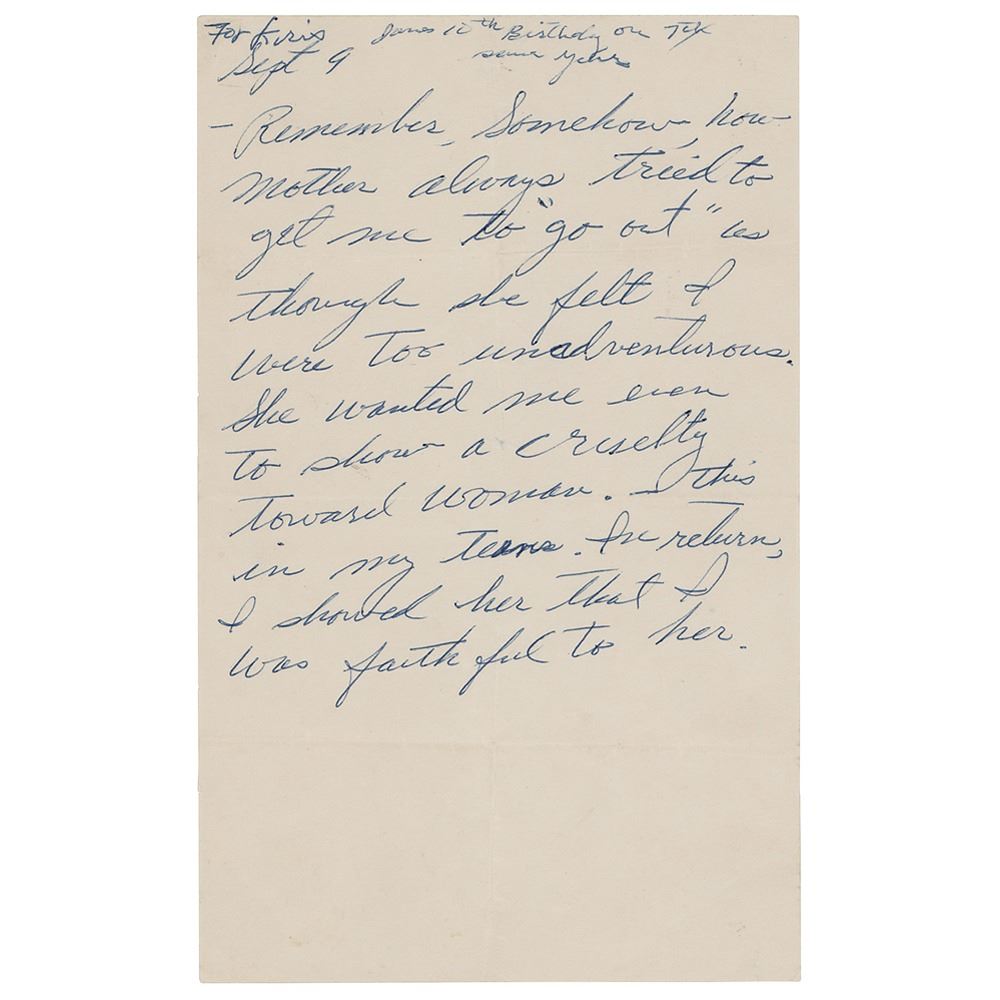 For
Janes 10th Birthday on
Sept 9 same year
- Remember, Somehow, how
mother always tried to
get me to "go out" as
though she felt I
were too unadventurous.
She wanted me even
to show a cruelty
toward woman. — this
in my teens. In return,
I showed her that I
was faithful to her.